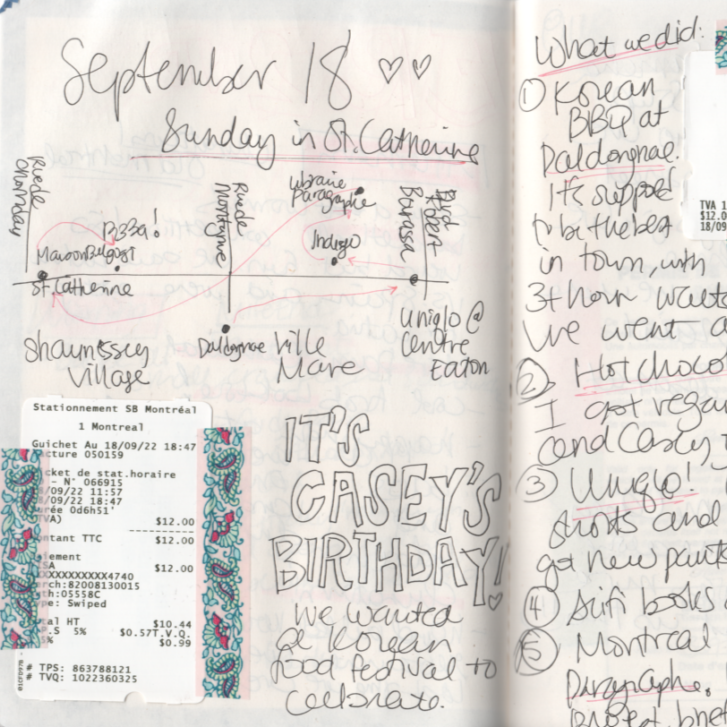 September 18 ♡♡
Sunday in St. Catherine
Librairie
Paragraphe
Indigo
Maison
St. Catherine
Village
Daldongnae
Ville
Marie
Uniqlo @
Centre
Eaton
Stationnement SB Montréal
1 Montreal
Guichet Au 18/09/22 18:47
acture 050159
cket de stat.horaire
- N° 066915
/09/22 11:57
/09/22 18:47
rée 0d6h51'
TVA) $12.00
ntant TTC $12.00
iement
SA $12.00
XXXXXXXXXXX4740
erch:82008130015
th:05558C
pe: Swiped
tal HT $10.44
P.S 5% $0.57T.V.Q.
5% $0.99
# TPS: 863788121
# TVQ: 1022360325
IT'S
CASEY'S
BIRTHDAY!
We wanted
a Korean
food festival to
celebrate.
What we did:
① Korean
BBQ at
Daldongnae.
It's supposed
to be the best
in town, with
3+ hour waits
we went
② Hot choco
I got regu
and Casey
③ Uniqlo!
shorts and
got new pants
④ Sci fi books
⑤ Montreal
Paragraphe.
TVA 1
$12.0
18/09